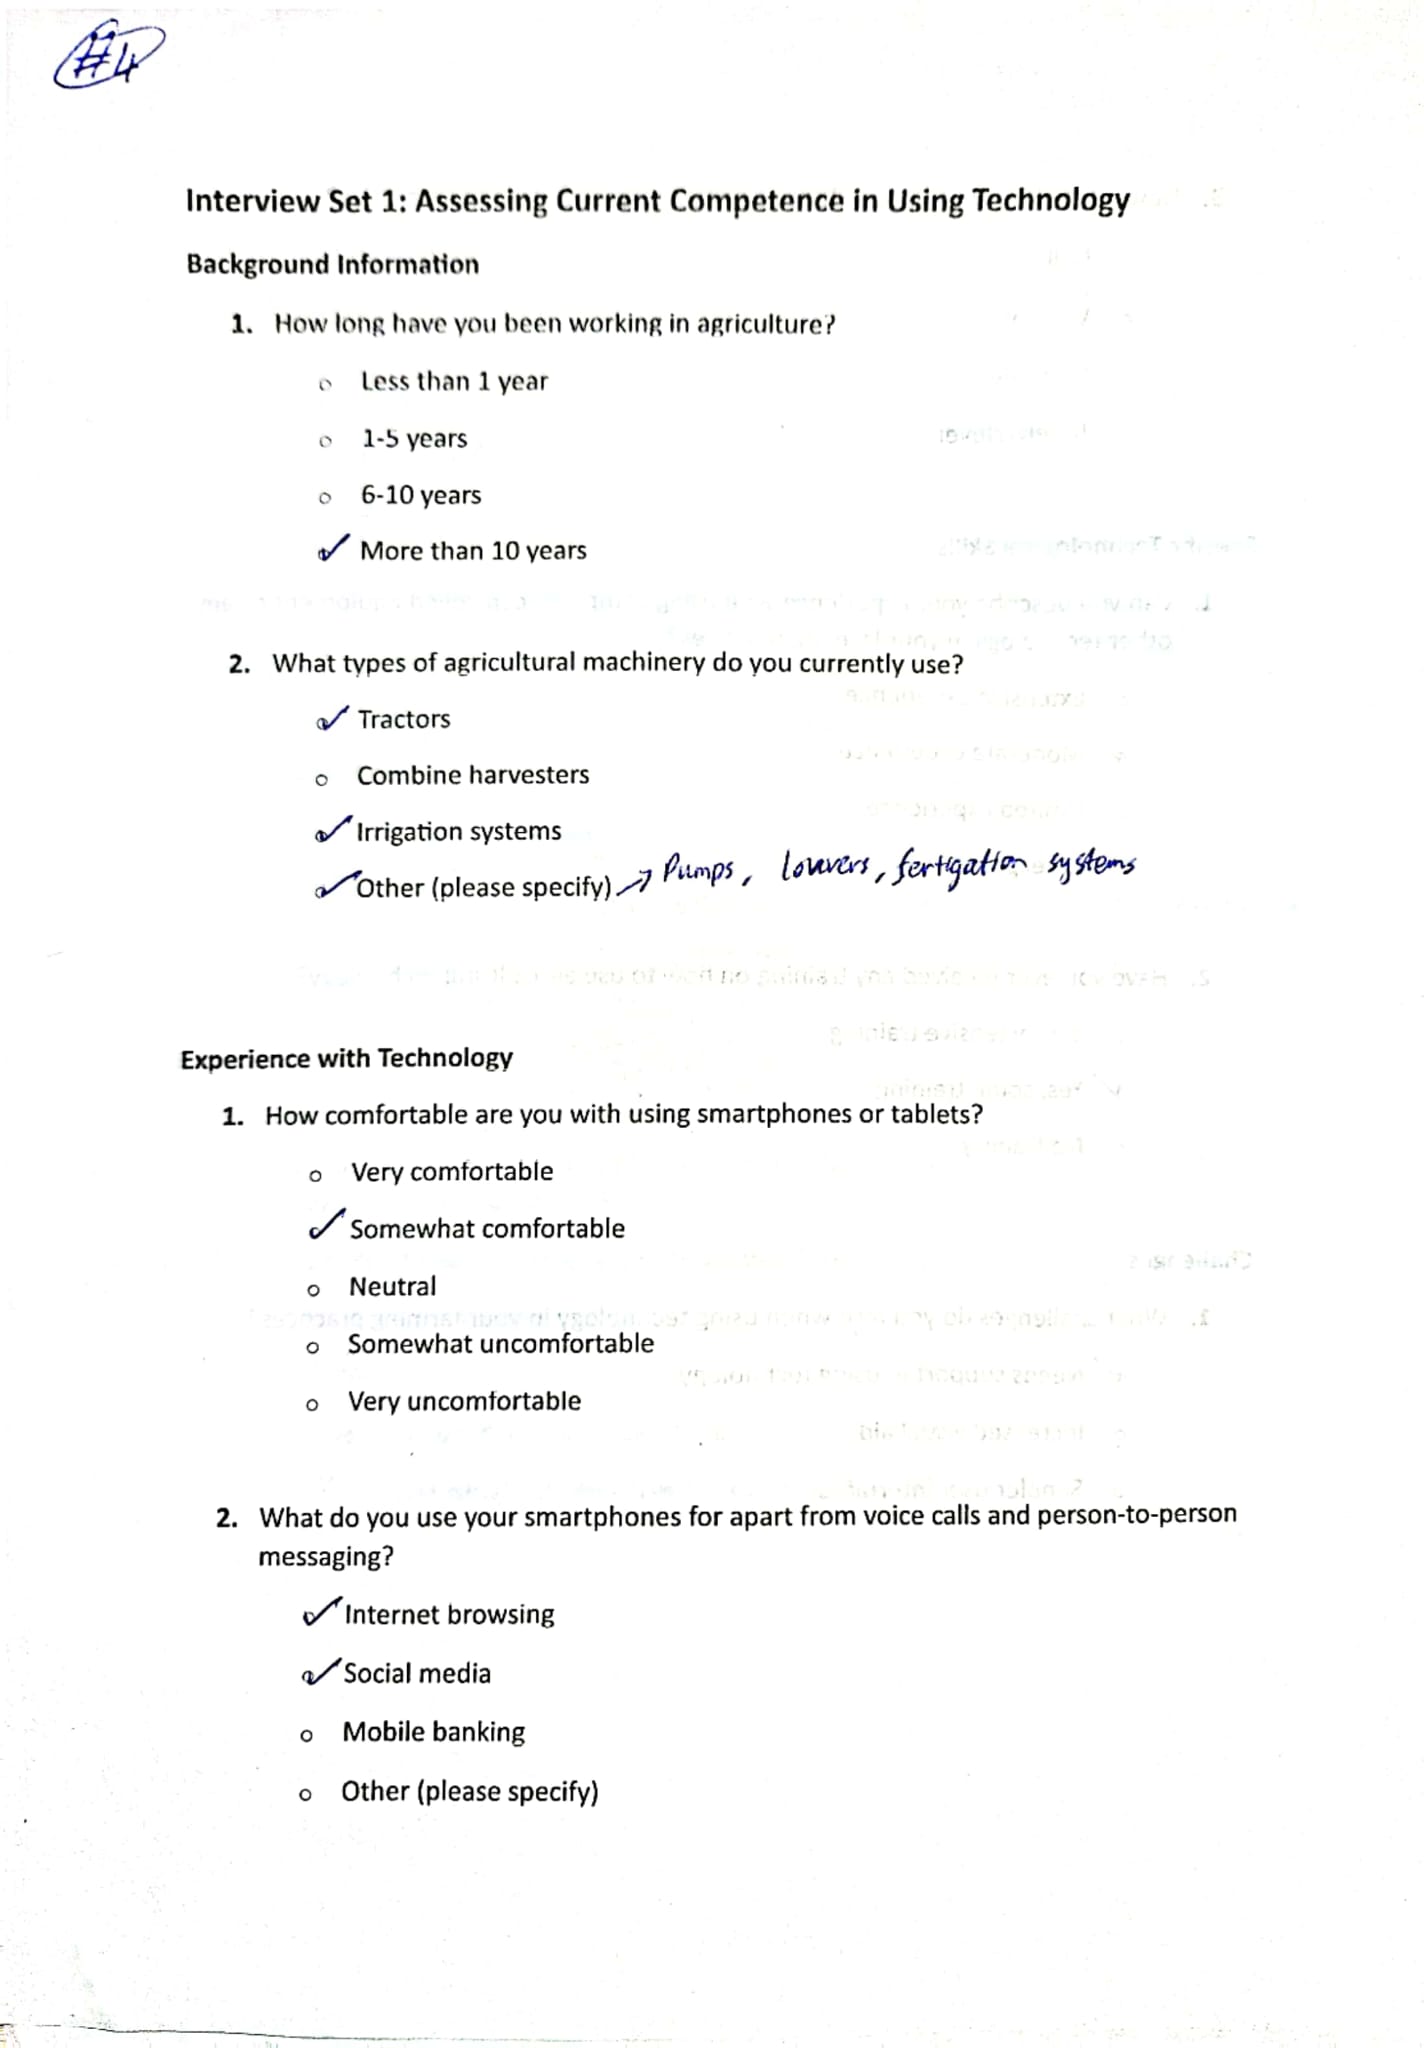 #4
Interview Set 1: Assessing Current Competence in Using Technology
Background Information
1. How long have you been working in agriculture?
o Less than 1 year
o 1-5 years
o 6-10 years
✓ More than 10 years
2. What types of agricultural machinery do you currently use?
✓ Tractors
o Combine harvesters
✓ Irrigation systems
✓ Other (please specify) → Pumps, louvers, fertigation systems
Experience with Technology
1. How comfortable are you with using smartphones or tablets?
o Very comfortable
✓ Somewhat comfortable
o Neutral
o Somewhat uncomfortable
o Very uncomfortable
2. What do you use your smartphones for apart from voice calls and person-to-person
messaging?
✓ Internet browsing
✓ Social media
o Mobile banking
o Other (please specify)